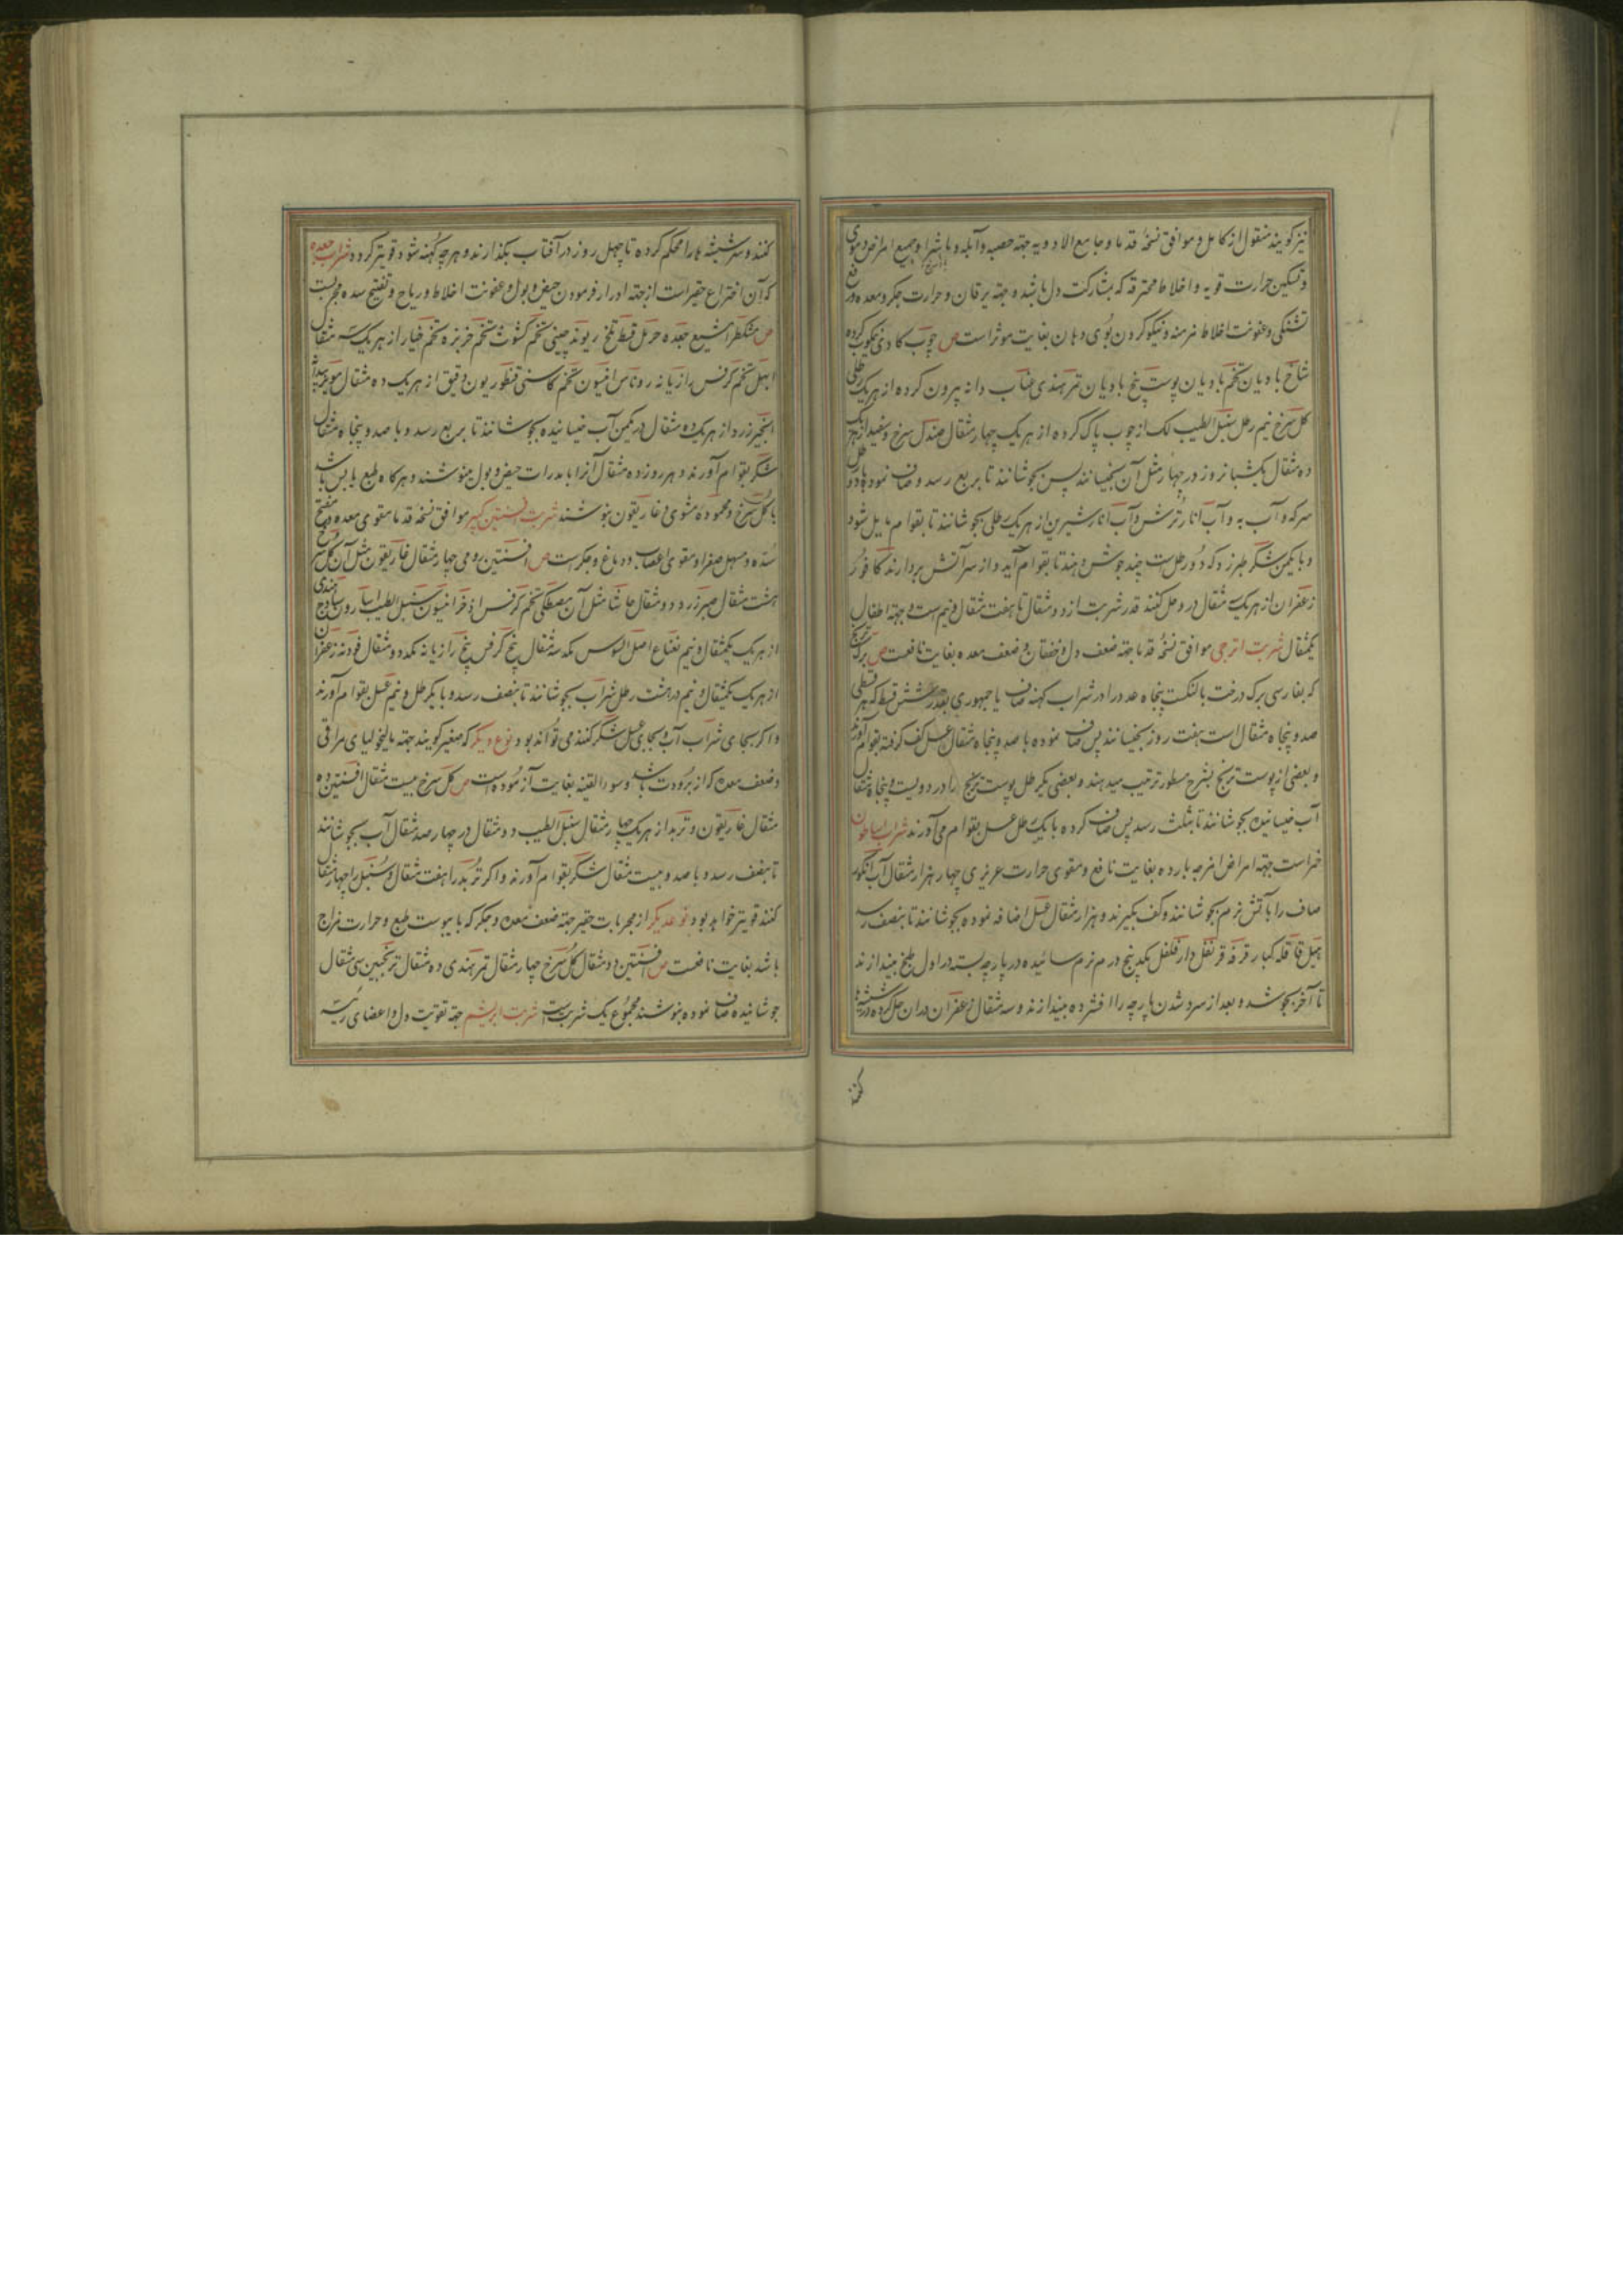 نیز کویند منقول از کامل و موافق نسخه قدما و جامع الادویه جهة حصبه و آبله و ماشرا و جمیع امراض دموی
و تسکین حرارت قویه و اخلاط محترقه که بمشارکت دل باشد و جهة یرقان و حرارت جکر و معده و رفع
تشنکی و عفونت اخلاط مزمنه و نیکو کردن بوی دهان بغایت موثر است ص چوب کادی نیکوب کرده
شاخ بادیان تخم بادیان پوست بیخ بادیان تمر هندی عناب دانه بیرون کرده از هریک رطلی
کل سرخ نیم رطل سنبل الطیب لک از چوب پاک کرده از هریک چهار مثقال صندل سرخ و سفید از هریک
ده مثقال یکشبانروز در چهار مثل آن بخیسانند پس بجوشانند تا بربع رسد و صاف نموده با دو رطل
سرکه و آب به و آب انار ترش و آب انار شیرین از هریک رطلی بجوشانند تا بقوام مایل شود
و با یکمن شکر طبرزد که دو رطلست چند جوش دهند تا بقوام آید و از سر آتش بردارند کافور
زعفران از هریک مثقال درو حل کنند قدر شربت از دو مثقال تا هفت مثقال و نیم است و جهة اطفال
یکمثقال شربت اترجی موافق نسخه قدما جهة ضعف دل و خفقان و ضعف معده بغایت نافعست ص برک ترنج
که بفارسی برک درخت بالنکست پنجاه عدد را در شراب کهنه صاف یا جمهوری بقدر شش قسط که هر قسطی
صد و پنجاه مثقال است هفت روز بخیسانند پس صاف نموده با صد و پنجاه مثقال عسل کف کرفته بقوام آورند
و بعضی از پوست ترنج بشرح مسطور ترتیب میدهند و بعضی یکرطل پوست ترنج را در دویست و پنجاه مثقال
آب خیسانیده بجوشانند تا بثلث رسد پس صاف کرده با یکرطل عسل بقوام می آورند شراب
خمر است جهة امراض امزجه بارده بغایت نافع و مقوی حرارت غریزی چهار هزار مثقال آب انکور
صاف را بآتش نرم بجوشانند و کف بکیرند و هزار مثقال عسل اضافه نموده بجوشانند تا بنصف رسد
هیل قاقله کبار قرفه قرنفل دارفلفل یکدو پنج درم نرم سائیده در پارچه بسته در اول طبخ بیندازند
تا آخر بجوشد و بعد از سرد شدن پارچه را افشرده بیندازند و سه مثقال زعفران در ان حل کرده در شیشها
کنند
کنند و سر شیشه ها را محکم کرده تا چهل روز در آفتاب بکذارند و هر چه کهنه شود قویتر کردد شراب جعده
که آن اختراع حقیر است از جهة ادرار فرمودن حیض و بول و عفونت اخلاط و ریاح و تفتیح سده مجربست
ص مشکطرامشیع جعده حرمل قسط تلخ ریوند چینی تخم کشوث تخم خربزه تخم خیار از هریک سه مثقال
ابهل تخم کرفس رازیانه روناس افتیمون تخم کاسنی قنطوریون دقیق از هریک ده مثقال مویز بیدانه
انجیر زرد از هریک ده مثقال در یکمن آب خیسانیده بجوشانند تا بربع رسد و با صد و پنجاه مثقال
شکر بقوام آورند و هر روز ده مثقال آنرا با مدرات حیض و بول بنوشند و هرکاه طبع یابس باشد
با کل سرخ و محموده مشوی و غاریقون بنوشند شربت افسنتین کبیر موافق نسخه قدما مقوی معده و مفتح
سده و مسهل صفرا و مقوی اعصاب و دماغ و جکر است ص افسنتین رومی چهار مثقال غاریقون مثل آن کل سرخ
هشت مثقال صبر زرد دو مثقال حاشا مثل آن مصطکی تخم کرفس اذخر انیسون سنبل الطیب اسارون ساذج هندی
از هریک یکمثقال و نیم نعناع اصل السوس یکد سه مثقال بیخ کرفس بیخ رازیانه یکد دو مثقال فودنه زعفران
از هریک یکمثقال و نیم در هشت رطل شراب بجوشانند تا بنصف رسد و با یکرطل و نیم عسل بقوام آورند
و اکر بجای شراب آب و بجای عسل شکر کنند می تواند بود و نوع دیکر که صغیر کویند جهة مالیخولیای مراقی
و ضعف معده که از برودت باشد و سوء القنیه بغایت آزموده است ص کل سرخ بیست مثقال افسنتین ده
مثقال غاریقون و تربد از هریک چهار مثقال سنبل الطیب دو مثقال در چهار صد مثقال آب بجوشانند
تا بنصف رسد و با صد و بیست مثقال شکر بقوام آورند و اکر تربد را هفت مثقال و سنبل را چهار مثقال
کنند قویتر خواهد بود نوعدیکر از مجربات حقیر جهة ضعف معده و جکر که با یبوست طبع و حرارت مزاج
باشد بغایت نافعست ص افسنتین دو مثقال کل سرخ چهار مثقال تمر هندی ده مثقال ترنجبین سی مثقال
جوشانیده صاف نموده بنوشند مجموع یک شربتست شربت ابریشم جهة تقویت دل و اعضای رئیسه